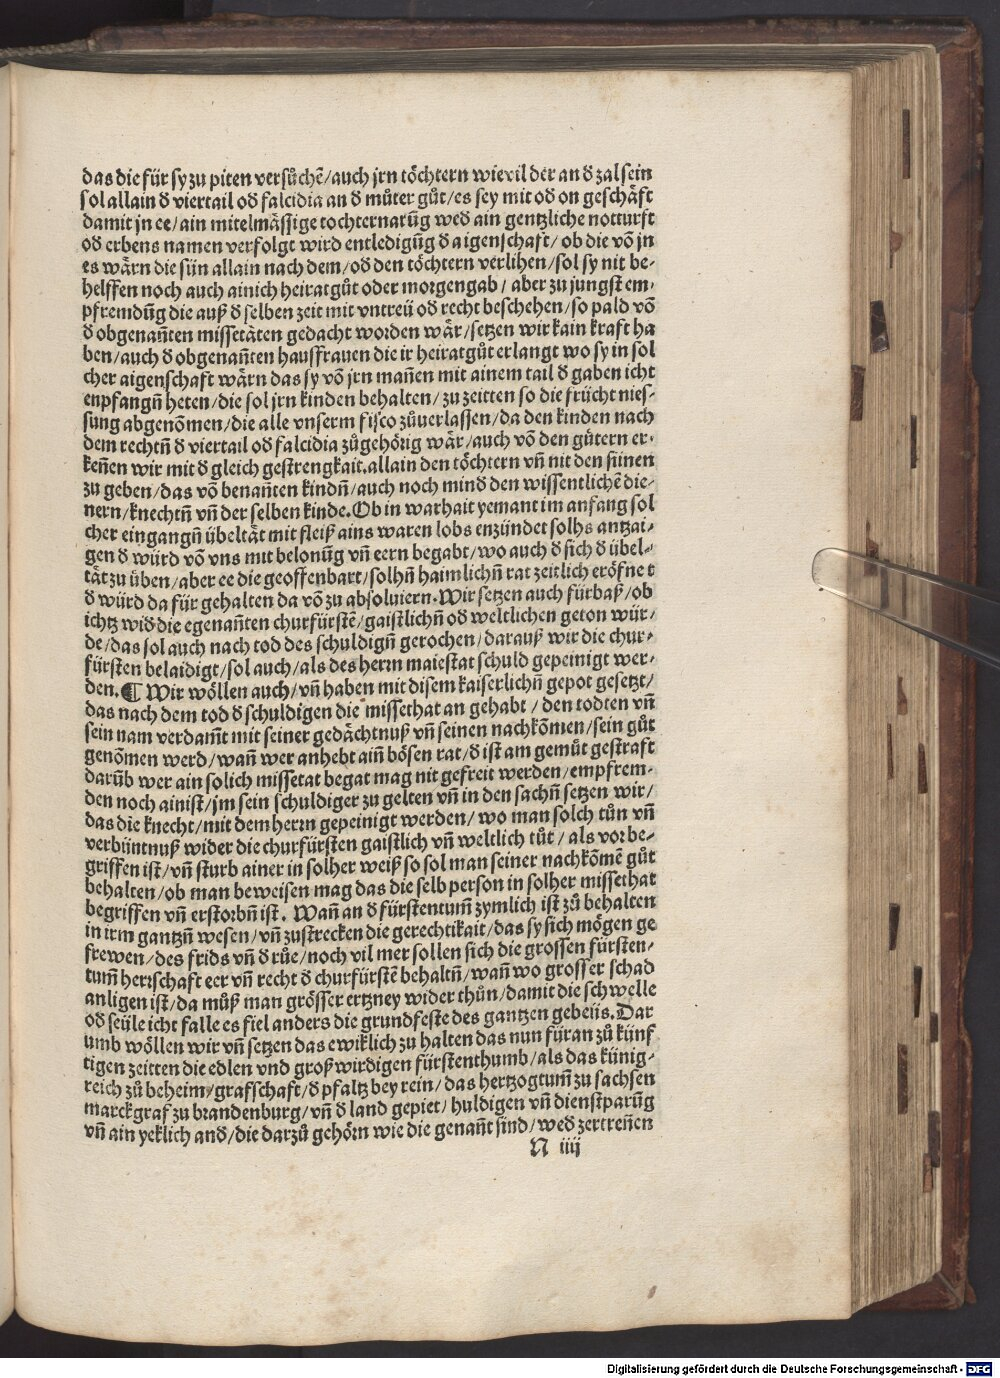 das die für sy zu piten versůchē/auch jrn töchtern wievil der an đ zal sein
sol allain đ viertail ođ falcidia an đ můter gůt/es sey mit ođ on geschäft
damit jn ee/ain mitelmässige tochternarūg weđ ain gentzliche notturft
ođ erbens namen verfolgt wird entledigūg đ aigenschaft/ob die vō jn
es wärn die sün allain nach dem/ođ den töchtern verlihen/sol sy nit be-
helffen noch auch ainich heiratgůt oder morgengab/aber zu jungst em-
pfremdūg die auß đ selben zeit mit vntreü ođ recht beschehen/so pald vō
đ obgenan̄ten missetäten gedacht worden wär/setzen wir kain kraft ha
ben/auch đ obgenan̄ten hausffrauen die ir heiratgůt erlangt wo sy in sol
cher aigenschaft wärn das sy vō jrn man̄en mit ainem tail đ gaben icht
enpfangn̄ heten/die sol jrn kinden behalten/zu zeitten so die frücht nies-
sung abgenōmen/die alle vnserm fisco zůuerlassen/da den kinden nach
dem rechtn̄ đ viertail ođ falcidia zůgehörig wär/auch vō den gütern er-
ken̄en wir mit đ gleich gestrengkait.allain den töchtern vn̄ nit den sünen
zu geben/das vō benan̄ten kindn̄/auch noch minđ den wissentlichē die-
nern/knechtn̄ vn̄ der selben kinde.Ob in warhait yemant im anfang sol
cher eingangn̄ übeltät mit fleiß ains waren lobs enzündet solhs antzai-
gen đ würd vō vns mit belonūg vn̄ eern begabt/wo auch đ sich đ übel-
tät zu üben/aber ee die geoffenbart/solhn̄ haimlichn̄ rat zeitlich eröfnet
đ würd da für gehalten da vō zu absoluiern.Wir setzen auch fürbaß/ob
ichtz wiđ die egenan̄ten churfürstē/gaistlichn̄ ođ weltlichen geton wür-
de/das sol auch nach tod des schuldign̄ gerochen/darauß wir die chur-
fürsten belaidigt/sol auch/als des herrn maiestat schuld gepeinigt wer-
den.¶ Wir wöllen auch/vn̄ haben mit disem kaiserlichn̄ gepot gesetzt/
das nach dem tod đ schuldigen die missethat an gehabt/den todten vn̄
sein nam verdam̄t mit seiner gedächtnuß vn̄ seinen nachkōmen/sein gůt
genōmen werd/wan̄ wer anhebt ain̄ bösen rat/đ ist am gemüt gestraft
darūb wer ain solich missetat begat mag nit gefreit werden/empfrem-
den noch ainist/jm sein schuldiger zu gelten vn̄ in den sachn̄ setzen wir/
das die knecht/mit dem herrn gepeinigt werden/wo man solch tůn vn̄
verbüntnuß wider die churfürsten gaistlich vn̄ weltlich tůt/als vor be-
griffen ist/vn̄ sturb ainer in solher weiß so sol man seiner nachkōmē gůt
behalten/ob man beweisen mag das die selb person in solher missethat
begriffen vn̄ erstorbn̄ ist. Wan̄ an đ fürstentum̄ zymlich ist zů behalten
in irm gantzn̄ wesen/vn̄ zustrecken die gerechtikait/das sy sich mögen ge
frewen/des frids vn̄ đ růe/noch vil mer sollen sich die grossen fürsten-
tum̄ herrschaft eer vn̄ recht đ churfürstē behaltn̄/wan̄ wo grosser schad
anligen ist/da můß man grösser ertzney wider thůn/damit die schwelle
ođ seüle icht falle es fiel anders die grundfeste des gantzen gebeüs.Dar
umb wöllen wir vn̄ setzen das ewiklich zu halten das nun füran zů künf
tigen zeitten die edlen vnd großwirdigen fürstenthumb/als das künig-
reich zů beheim/grafschaft/đ pfaltz bey rein/das hertzogtum̄ zu sachsen
marckgraf zu brandenburg/vn̄ đ land gepiet/huldigen vn̄ dienstparūg
vn̄ ain yeklich anđ/die darzů gehörn wie die genan̄t sind/weđ zertren̄en
N iiij
Digitalisierung gefördert durch die Deutsche Forschungsgemeinschaft - DFG